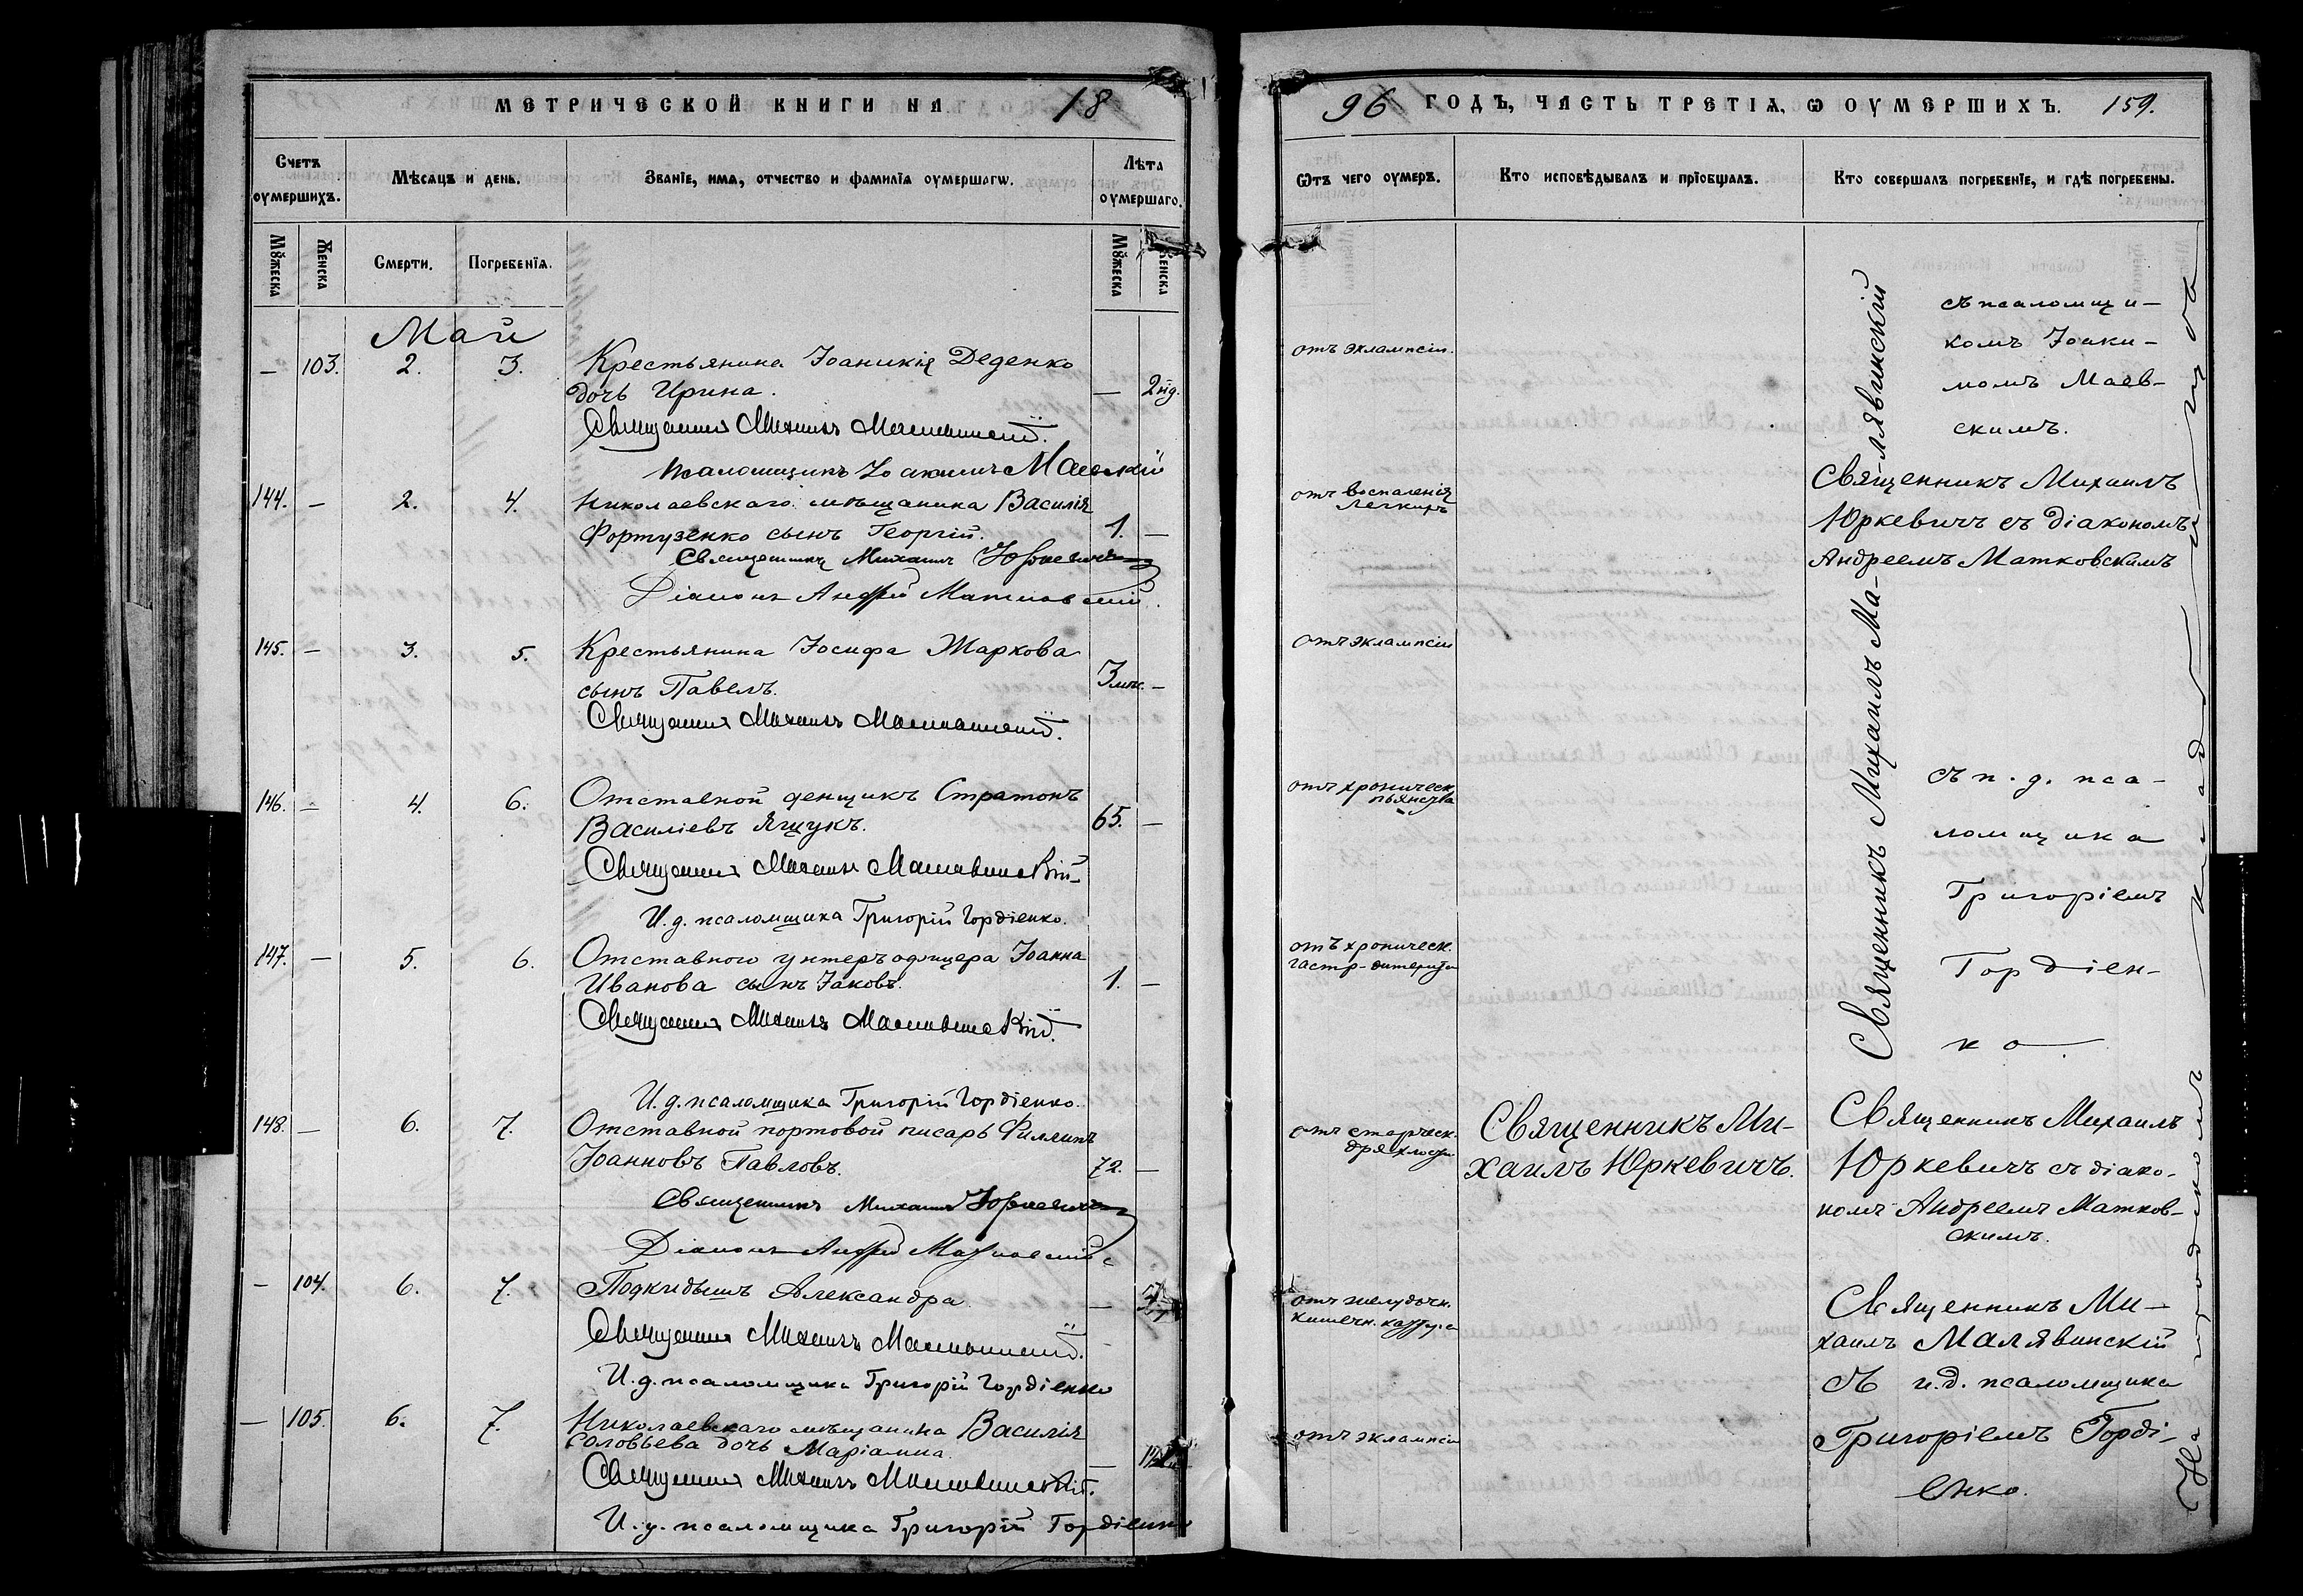 МЕТРИЧЕСКОЙ КНИГИ НА 18
Счетъ оумершихъ.
Мѣсяцъ и день.
Званіе, имя, отчество и фамилія оумершагѡ.
Лѣта оумершаго.
Мꙋжеска
Женска
Смерти.
Погребенія.
Мꙋжеска
Женска
Май
— 103. 2. 3. Крестьянина Іоаникія Деденко
дочь Ирина. — 2 нд.
Священникъ Михаилъ Малявинскій.
Псаломщикъ Іоакимъ Маевскій
144. — 2. 4. Николаевскаго мѣщанина Василія
Фортузенко сынъ Георгій. 1. —
Священникъ Михаилъ Юркевичъ
Діаконъ Андрей Матковскій.
145. — 3. 5. Крестьянина Іосифа Жаркова
сынъ Павелъ. 3 мѣс. —
Священникъ Михаилъ Малявинскій.
146. — 4. 6. Отставной денщикъ Стратонъ
Василіевъ Ящукъ. 65. —
Священникъ Михаилъ Малявинскій
И. д. псаломщика Григорій Гордіенко.
147. — 5. 6. Отставного унтеръ офицера Іоанна
Иванова сынъ Іаковъ. 1. —
Священникъ Михаилъ Малявинскій.
И. д. псаломщика Григорій Гордіенко.
148. — 6. 7. Отставной портовой писарь Филиппъ
Іоанновъ Павловъ. 72. —
Священникъ Михаилъ Юркевичъ
Діаконъ Андрей Матковскій
— 104. 6. 7. Подкидышъ Александра. —
Священникъ Михаилъ Малявинскій.
И. д. псаломщика Григорій Гордіенко
— 105. 6. 7. Николаевскаго мѣщанина Василія
Соловьева дочь Маріамна. —
Священникъ Михаилъ Малявинскій.
И. д. псаломщика Григорій Гордіенко
96 ГОДЪ, ЧАСТЬ ТРЕТІѦ, Ѡ ОУМЕРШИХЪ. 159.
Ѿтъ чего оумеръ.
Кто исповѣдывалъ и пріобщалъ.
Кто совершалъ погребеніе, и гдѣ погребены.
отъ эклампсіи.
отъ воспаленія
легкихъ
отъ эклампсіи
отъ хроническ.
пьянства
отъ хроническ.
гастр-
отъ старческ.
дряхлости
отъ желудочн.
кишечн. катарра
отъ эклампсіи
Священникъ Ми-
хаилъ Юркевичъ.
Священникъ Михаилъ Ма-
лявинскій
съ псаломщи-
комъ Іоаки-
момъ Маев-
скимъ.
Священникъ Михаилъ
Юркевичъ съ діакономъ
Андреемъ Матковскимъ
съ и. д. пса-
ломщика
Григоріемъ
Гордіен-
ко.
Священникъ Михаилъ
Юркевичъ съ діако-
номъ Андреемъ Матков-
скимъ.
Священникъ Ми-
хаилъ Малявинскій
съ и. д. псаломщика
Григоріемъ Горді-
енко.
На городскомъ кладбищѣ